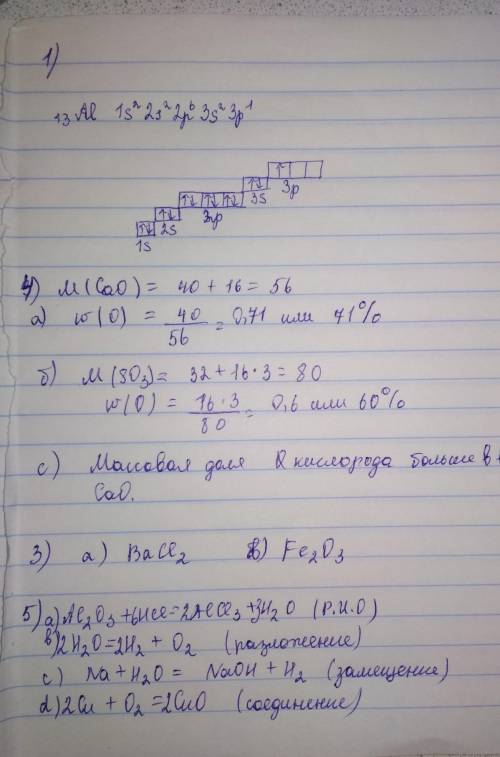 1)
₁₃Al 1s² 2s² 2p⁶ 3s² 3p¹
↑↓ ↑↓ ↑↓ ↑↓ ↑↓ ↑↓ ↑
1s 2s 3s 3p
4) M(CaO) = 40 + 16 = 56
а) w(O) = 40/56 = 0,71 или 71%
б) M(SO₃) = 32 + 16·3 = 80
w(O) = 16·3/80 = 0,6 или 60%
с) Массовая доля кислорода больше в
CaO.
3) а) BaCl₂ в) Fe₂O₃
5) а) Al₂O₃ + 6HCl = 2AlCl₃ + 3H₂O (Р.И.О)
в) 2H₂O = 2H₂ + O₂ (разложение)
с) Na + H₂O = NaOH + H₂ (замещение)
d) 2Cu + O₂ = 2CuO (соединение)